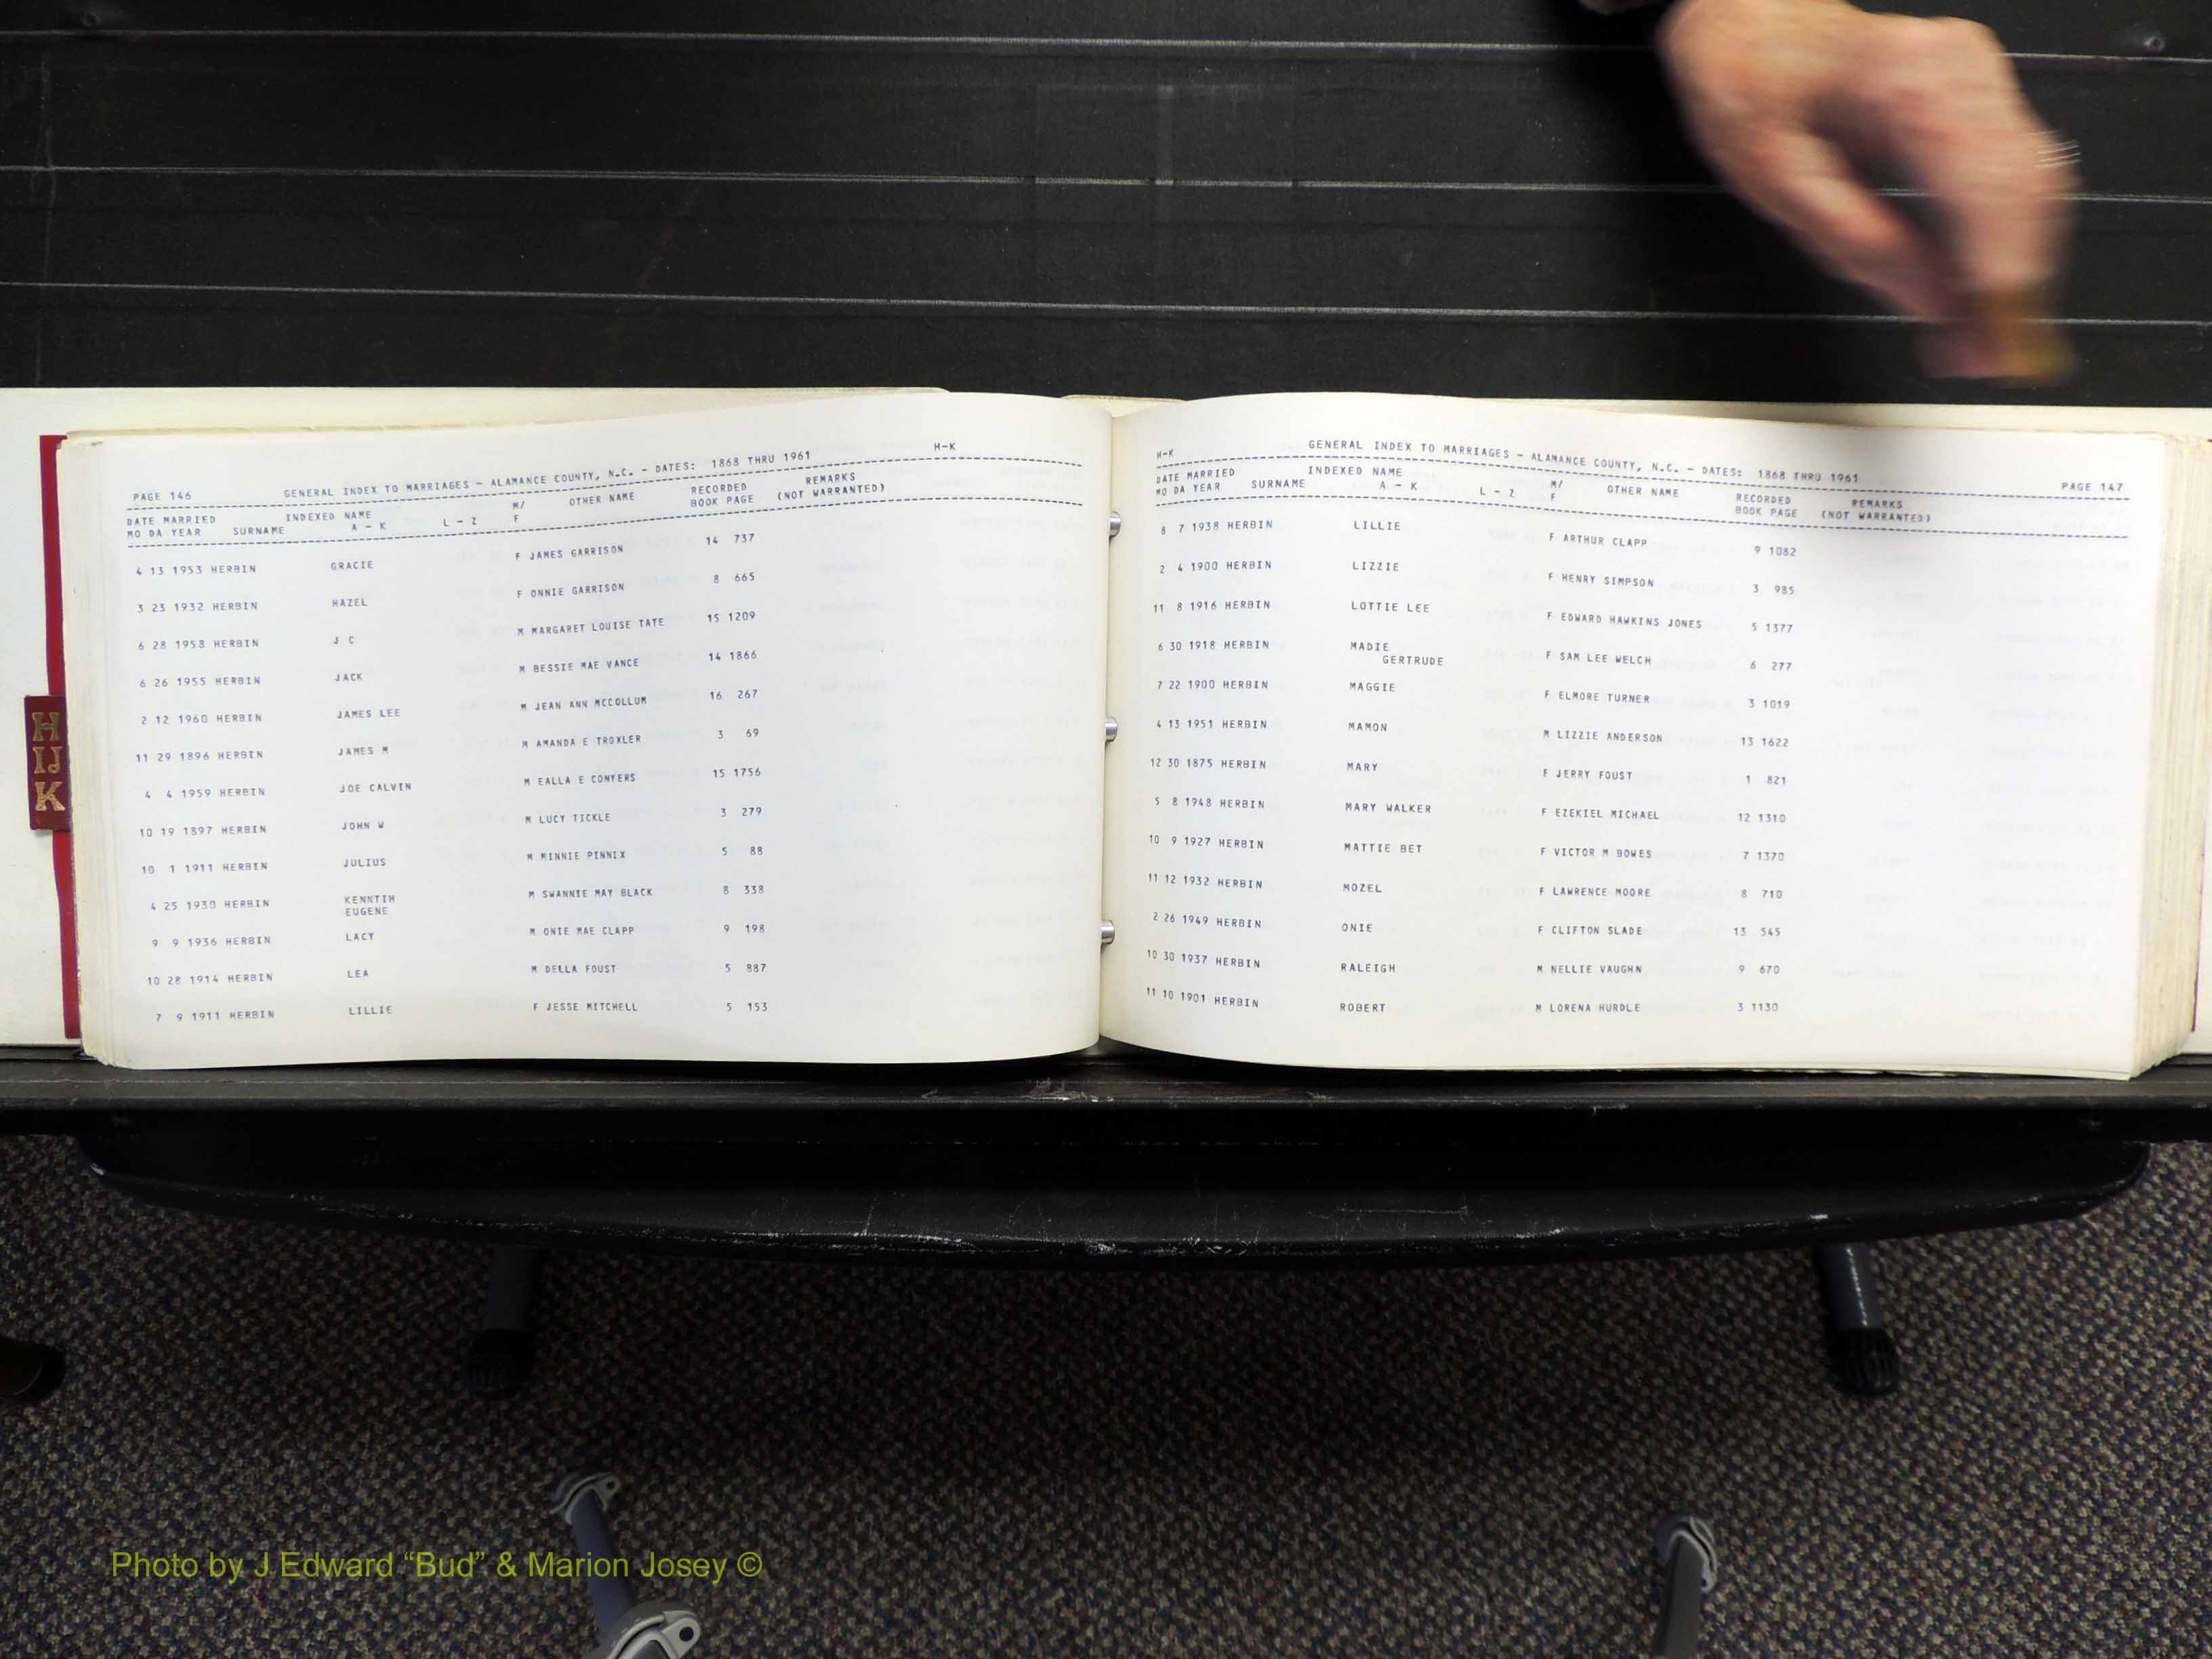 PAGE 146 GENERAL INDEX TO MARRIAGES - ALAMANCE COUNTY, N.C. - DATES: 1868 THRU 1961 H-K
DATE MARRIED INDEXED NAME M/ OTHER NAME RECORDED REMARKS
MO DA YEAR SURNAME A - K L - Z F BOOK PAGE (NOT WARRANTED)
4 13 1953 HERBIN GRACIE F JAMES GARRISON 14 737
3 23 1932 HERBIN HAZEL F ONNIE GARRISON 8 665
6 28 1958 HERBIN J C M MARGARET LOUISE TATE 15 1209
6 26 1955 HERBIN JACK M BESSIE MAE VANCE 14 1866
2 12 1960 HERBIN JAMES LEE M JEAN ANN MCCOLLUM 16 267
11 29 1896 HERBIN JAMES M M AMANDA E TROXLER 3 69
4 4 1959 HERBIN JOE CALVIN M EALLA E CONYERS 15 1756
10 19 1897 HERBIN JOHN W M LUCY TICKLE 3 279
10 1 1911 HERBIN JULIUS M MINNIE PINNIX 5 88
4 25 1930 HERBIN KENNTIH M SWANNIE MAY BLACK 8 338
EUGENE
9 9 1936 HERBIN LACY M ONIE MAE CLAPP 9 198
10 28 1914 HERBIN LEA M DELLA FOUST 5 887
7 9 1911 HERBIN LILLIE F JESSE MITCHELL 5 153
H-K GENERAL INDEX TO MARRIAGES - ALAMANCE COUNTY, N.C. - DATES: 1868 THRU 1961 PAGE 147
DATE MARRIED INDEXED NAME M/ OTHER NAME RECORDED REMARKS
MO DA YEAR SURNAME A - K L - Z F BOOK PAGE (NOT WARRANTED)
8 7 1938 HERBIN LILLIE F ARTHUR CLAPP 9 1082
2 4 1900 HERBIN LIZZIE F HENRY SIMPSON 3 985
11 8 1916 HERBIN LOTTIE LEE F EDWARD HAWKINS JONES 5 1377
6 30 1918 HERBIN MADIE F SAM LEE WELCH 6 277
GERTRUDE
7 22 1900 HERBIN MAGGIE F ELMORE TURNER 3 1019
4 13 1951 HERBIN MAMON M LIZZIE ANDERSON 13 1622
12 30 1875 HERBIN MARY F JERRY FOUST 1 821
5 8 1948 HERBIN MARY WALKER F EZEKIEL MICHAEL 12 1310
10 9 1927 HERBIN MATTIE BET F VICTOR M BOWES 7 1370
11 12 1932 HERBIN MOZEL F LAWRENCE MOORE 8 710
2 26 1949 HERBIN ONIE F CLIFTON SLADE 13 545
10 30 1937 HERBIN RALEIGH M NELLIE VAUGHN 9 670
11 10 1901 HERBIN ROBERT M LORENA HURDLE 3 1130
H
IJ
K
Photo by J Edward “Bud” & Marion Josey ©